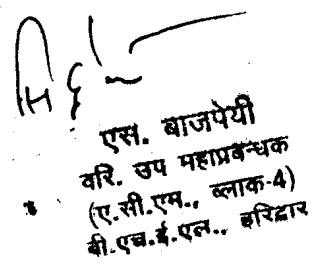 एस. बाजपेयी
वरि. उप महाप्रबन्धक
(ए.सी.एम., ब्लाक-4)
बी.एच.ई.एल., हरिद्वार